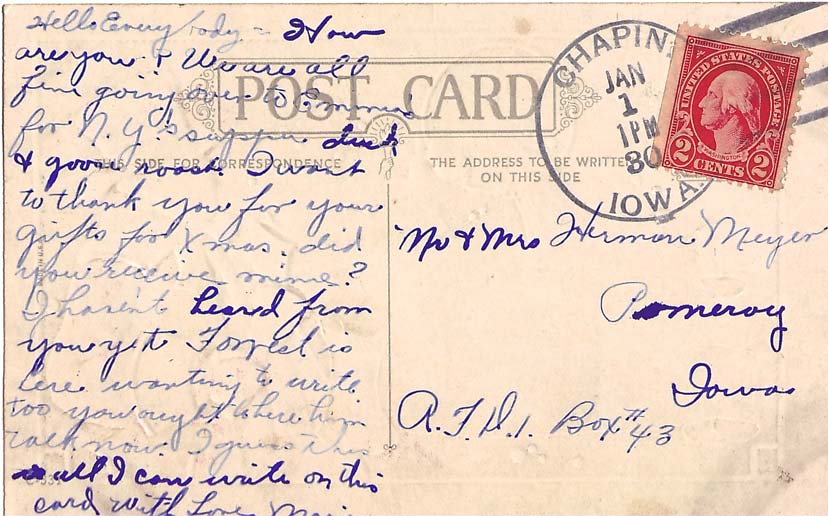 Hello Everybody - How
are you? We are all
fine going over to Emmas
for N. Y.'s supper duck
& goose roast. I want
to thank you for your
gifts for Xmas. did
you receive mine?
I havent heared from
you yet. Forrest is
here wanting to write
too you ought to here him
talk now. I guess this
is all I can write on this
card with Love
POST CARD
THIS SIDE FOR CORRESPONDENCE
THE ADDRESS TO BE WRITTEN
ON THIS SIDE
CHAPIN
JAN
1
1PM
30
IOWA.
UNITED STATES POSTAGE
WASHINGTON
2 CENTS 2
Mr & Mrs Herman Meyer
Pomeroy
Iowa
R.F.D. 1 Box # 43